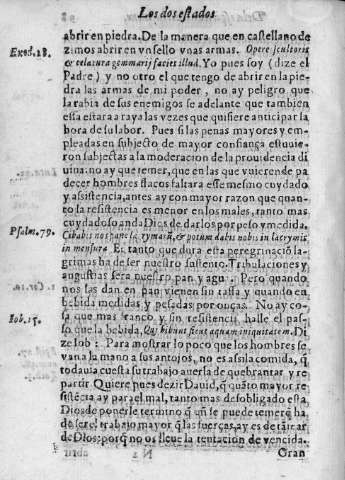 Los dos estados
abrir en piedra. De la manera que en castellano de
Exod. 28.
zimos abrir en vn sello vnas armas. Opere scultoris
& celatura gemmarij facies illud. Yo pues soy (dize el
Padre) y no otro el que tengo de abrir en la pie
dra las armas de mi poder, no ay peligro que
la rabia de sus enemigos se adelante que tambien
essa estara a raya las vezes que quisiere anticipar la
hora de su labor. Pues si las penas mayores y em-
pleadas en subjecto de mayor confiança estuuie-
ron subjectas a la moderacion de la prouidencia di
uina: no ay que temer, que en las que vuierende pa
decer hombres flacos faltara esse mesmo cuydado
y assistencia, antes ay con mayor razon que quan-
to la resistencia es menor en los males, tanto mas
cuydadoso anda Dios de darlos por peso y medida.
Psalm. 79.
Cibabis nos pane lacrymarũ, & potum dabis nobis in lacrymis
in mensura. Es tanto que dura esta peregrinació la-
grimas ha de ser nuestro sustento. Tribulaciones y
angustias sera nuestro pan y agua. Pero quando
nos las dan en pan vienen sin tassa y quando en
bebida medidas y pesadas por onças. No ay co-
Iob. 15.
sa que mas franco y sin resistencia halle el pas-
so que la bebida, Qui bibunt sicut aquam iniquitatem. Di
ze Iob: Para mostrar lo poco que los hombres se
va na la mano a sus antojos, no es assi la comida, q̃
toda uia cuesta su trabajo auerla de quebrantar, y re
partir. Quiere pues dezir Dauid, q̃ quãto mayor re-
sistẽcia ay para el mal, tanto mas desobligado esta
Dios de ponerle termino
de ser el trabajo mayor q̃ las fuerças, y as
de Dios: porq̃ no os lleue la tentacion de vencida.
N 2
Gran